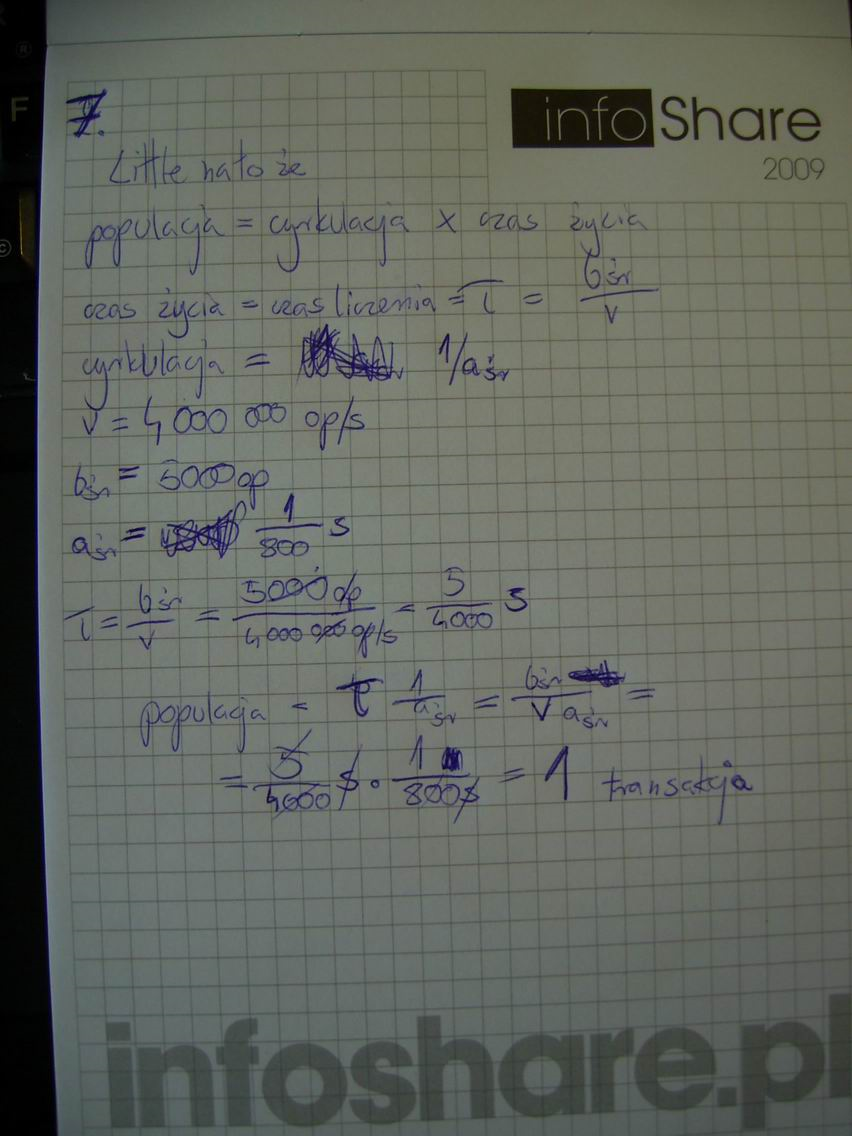 infoShare
2009
7.
Little na to że
populacja = cyrkulacja x czas życia
czas życia = czas liczenia = τ = bśr/v
cyrkulacja = 1/aśr
v = 4 000 000 op/s
bśr = 5000 op
aśr = 1/800 s
τ = bśr/v = 5000 op/4 000 000 op/s = 5/4000 s
populacja = τ 1/aśr = bśr/v aśr =
= 5/4000 s · 1/800s = 1 transakcja
infoshare.pl
F